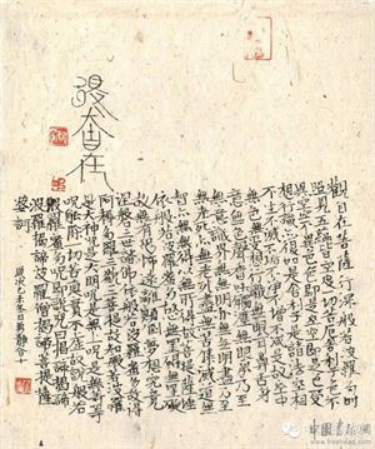 得大自在
觀自在菩薩行深般若波羅蜜多時
照見五蘊皆空度一切苦厄舍利子色不
異空空不異色色即是空空即是色受
想行識亦復如是舍利子是諸法空相
不生不滅不垢不淨不增不減是故空中
無色無受想行識無眼耳鼻舌身
意無色聲香味觸法無眼界乃至
無意識界無無明亦無無明盡乃至
無老死亦無老死盡無苦集滅道無
智亦無得以無所得故菩提薩埵
依般若波羅蜜多故心無罣礙無罣礙
故無有恐怖遠離顛倒夢想究竟
涅槃三世諸佛依般若波羅蜜多故得
阿耨多羅三藐三菩提故知般若波羅
是大神咒是大明咒是無上咒是無等等
咒能除一切苦真實不虛故說般若
波羅蜜多咒即說咒曰揭諦揭諦
波羅揭諦波羅僧揭諦菩提薩
婆訶